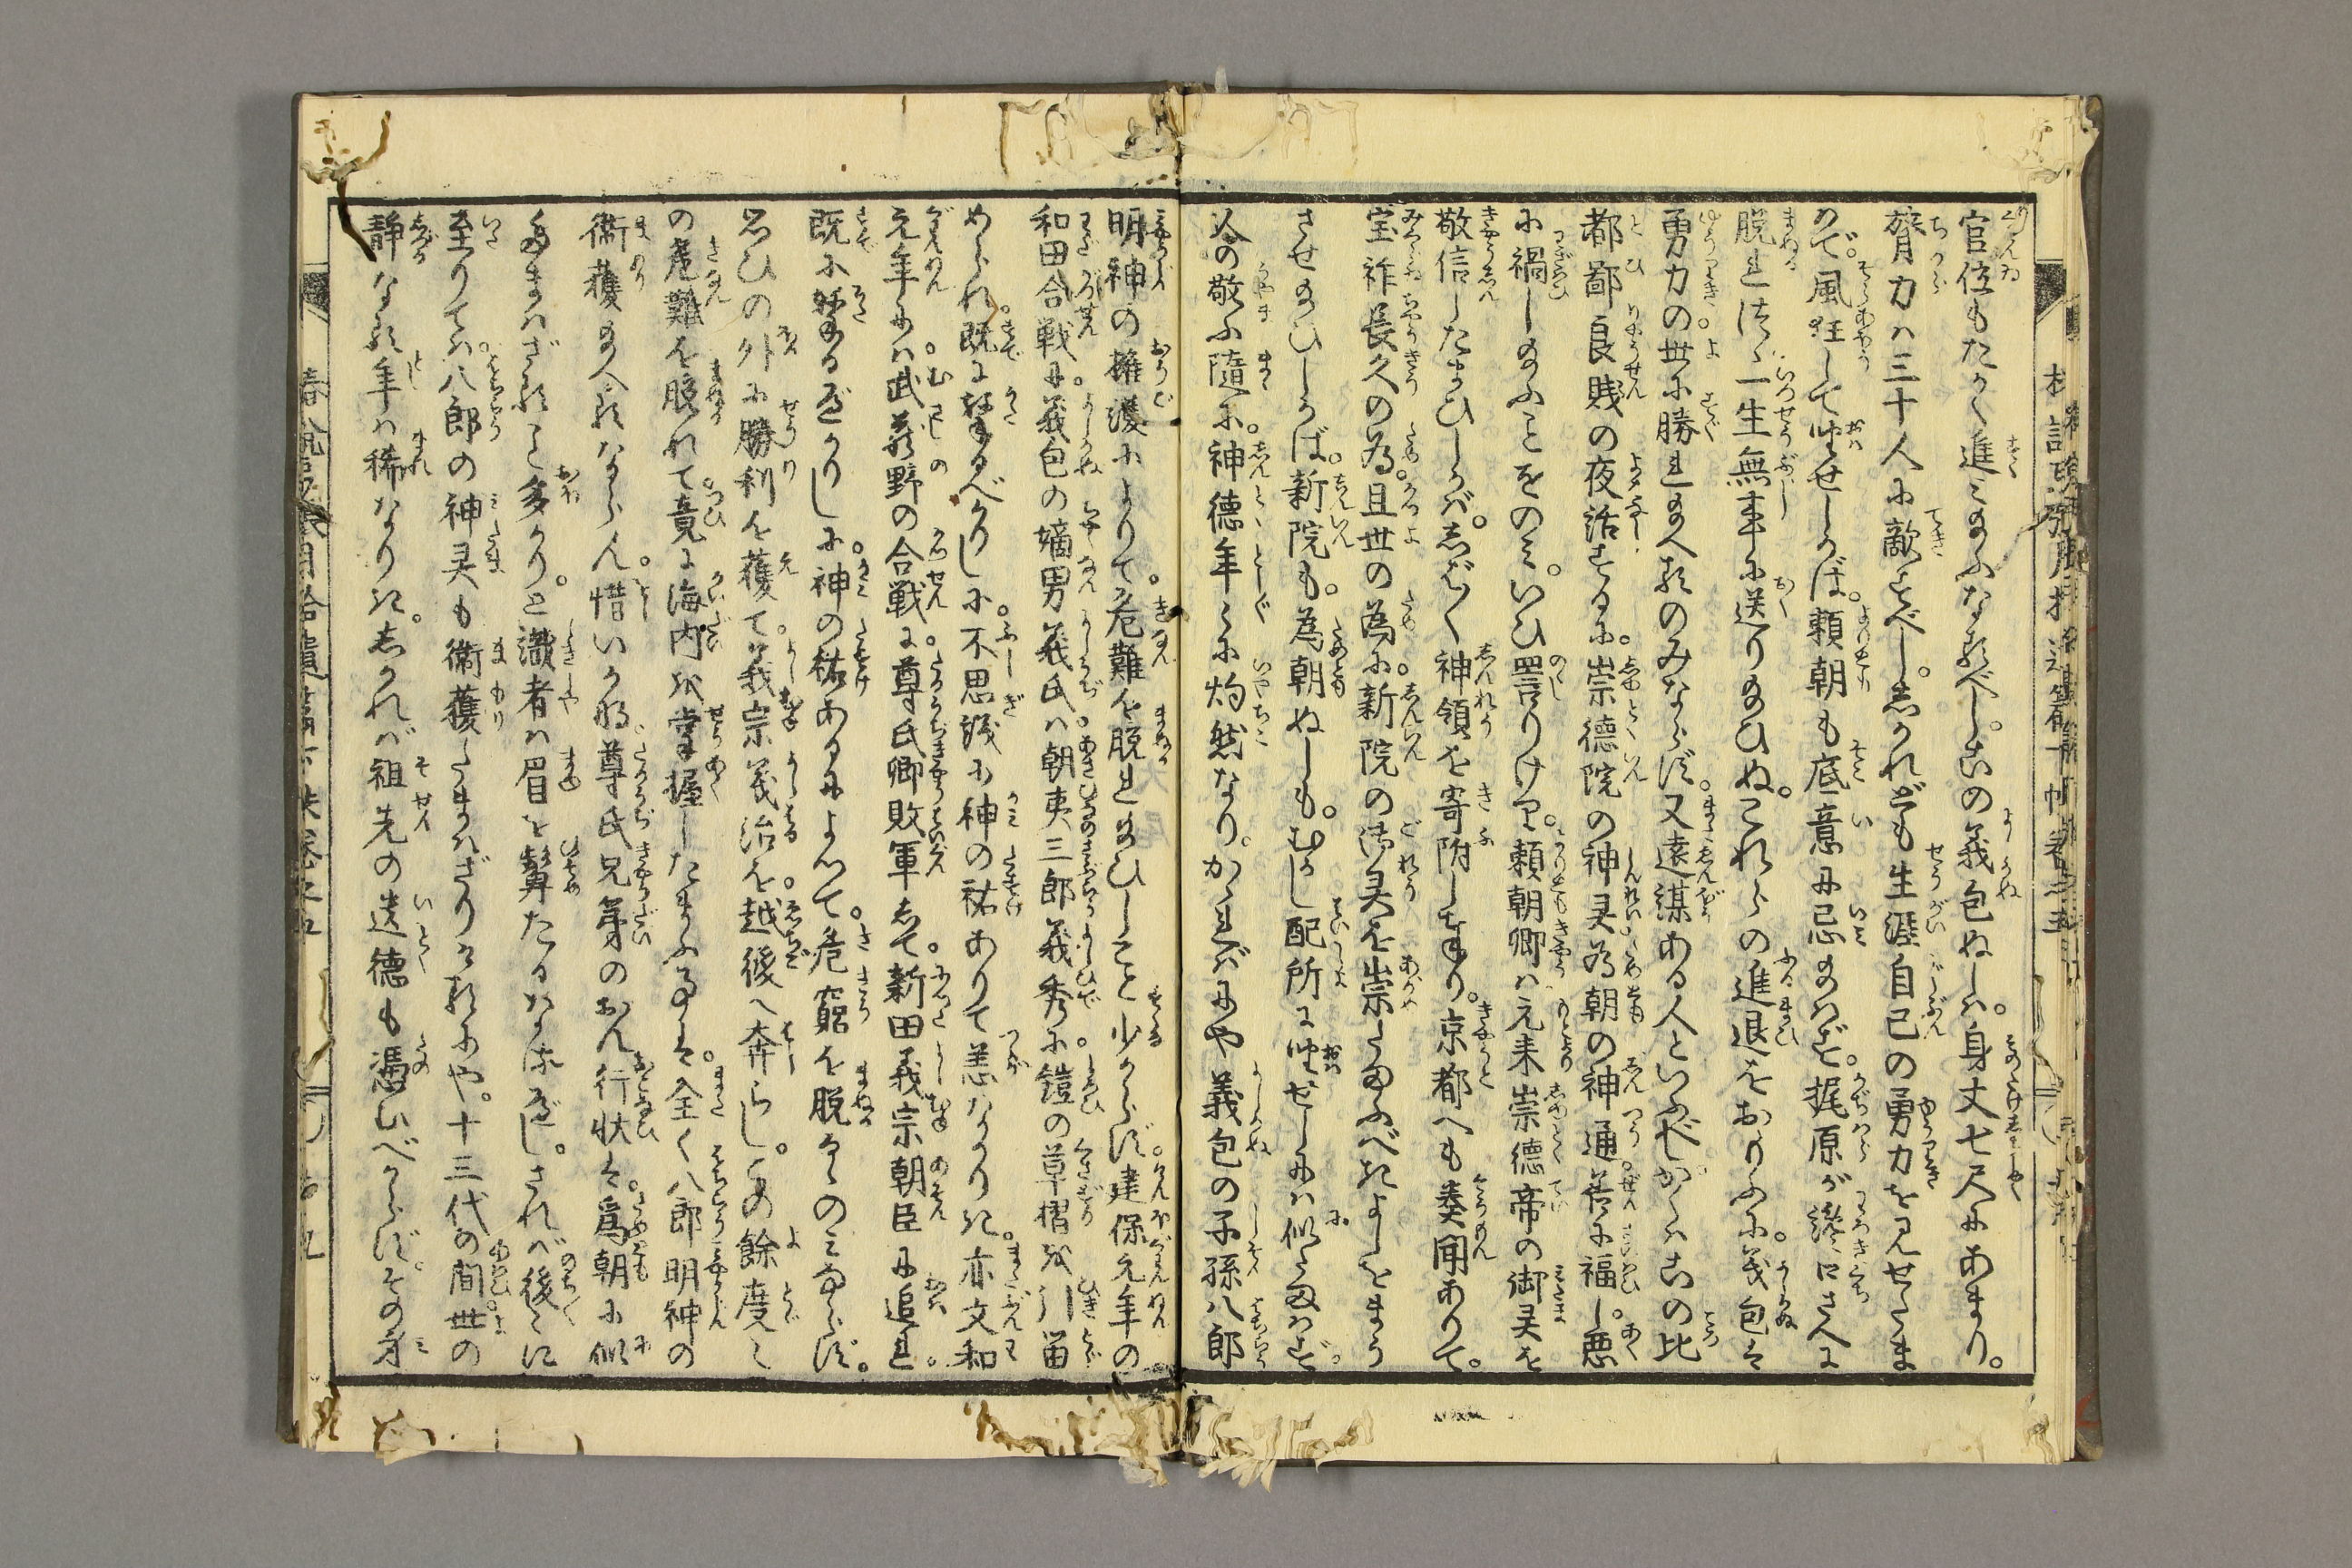 官位もたかく進み給ふなるべし。この義包ぬしは。身丈七尺にあまり。
膂力は三十人に敵すべし。しかれども生涯自己の勇力を見せたま
はで。風狂して坐せしかば。頼朝も底意に忌給はず。梶原が讒口さへに
脱れつゝ一生無事に送り給ひぬ。これらの進退をおもふに。義包は
勇力の世に勝れ給へるのみならず。又遠謀ある人といふべし。かくてこの比
都鄙良賤の夜話するに。崇徳院の神灵為朝の神通善に福し。悪
に禍し給ふことをのみ。いひ罵りけり。頼朝卿は元来崇徳帝の御灵を
敬信したまひしかば。しば〳〵神領を寄附し奉り。京都へも奏聞ありて。
宝祚長久の為。且世の為に。新院の御灵を崇たまふべきよしをまう
させ給ひしかば。新院も。為朝ぬしも。むかし配所に坐せしには似たまはず。
人の敬ふ隨に。神徳年々に灼然なり。かゝればにや義包の子孫八郎
明神の擁護によりて。危難を脱れ給ひしこと少からず。建保元年の
和田合戦に。義包の嫡男義氏は。朝夷三郎義秀に。鎧の草摺を引留
められ。既に撃るべかりしに。不思議に神の祐ありて恙なかりき。亦文和
元年には。武蔵野の合戦に。尊氏卿敗軍して。新田義宗朝臣に追れ。
既に撃るべかりしに。神の祐あるによつて。危窮を脱るゝのみならず。
思ひの外に勝利を獲て。義宗義治を。越後へ奔らし。その餘度々
の危難を脱れて。竟に海内を掌握したまふ事は。全く八郎明神の
衞護給へるならん。惜いかな。尊氏兄弟のおん行状は。爲朝に似
給はざること多かり。と識者は眉を顰たるなるべし。されば後々に
至りては。八郎の神灵も衞護たまはざりけるにや。十三代の間。世の
静なる年は稀なりき。しかれば祖先の遺徳も憑むべからず。その身